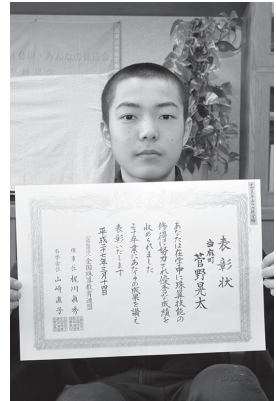 表彰状
当麻町
菅野晃太
あなたは在学中に珠算技能の
修得に努力され優秀な成績を
収められました
よって卒業にあたりその成果を讃え
表彰いたします
平成二十七年三月十四日
全国珠算教育連盟
理事長 梶川眞秀